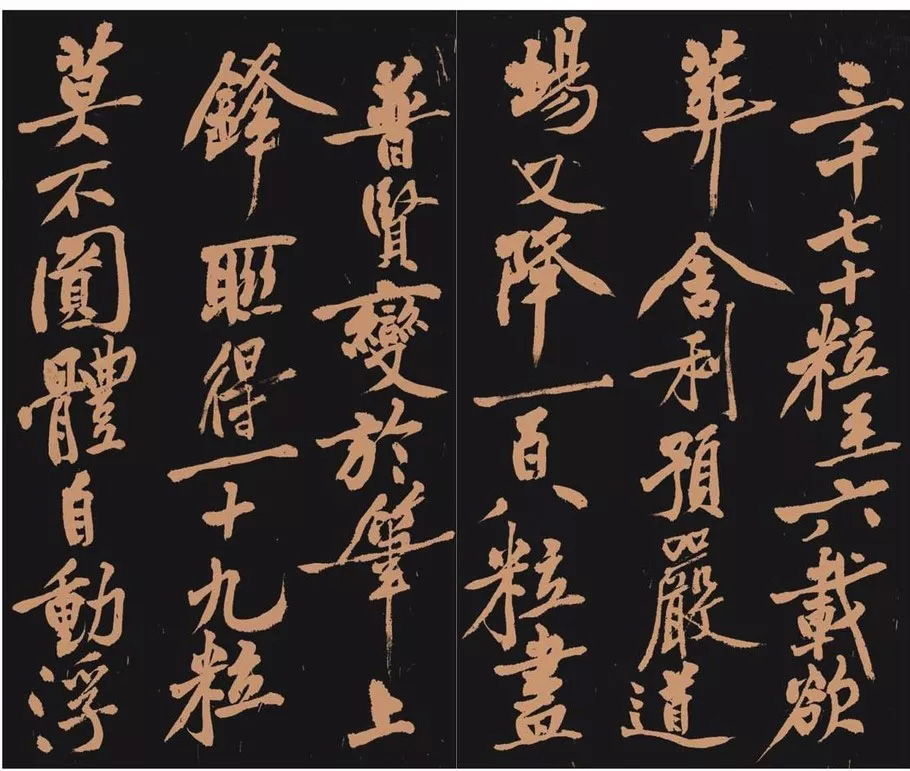 三千七十粒至六載欲
葬舍利預嚴道
場又降一百八粒盡
普賢變於筆上
鋒聯得一十九粒
莫不圓體自動浮